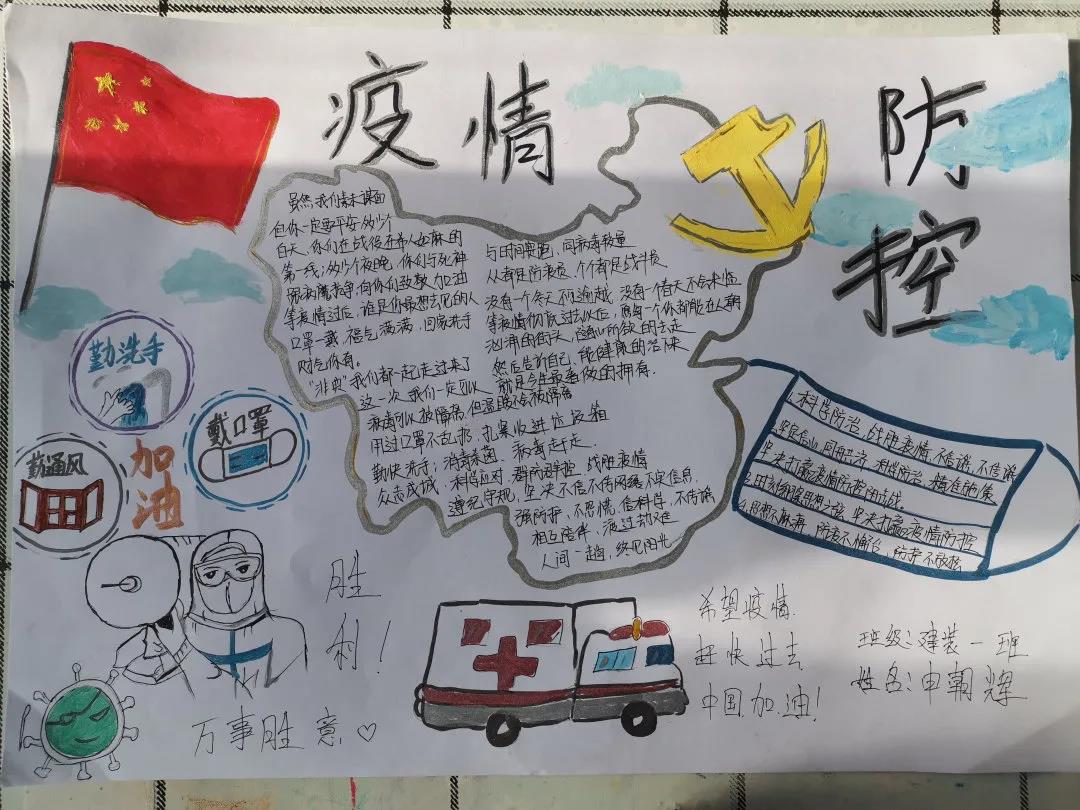 疫情
防
控
虽然我们素未谋面
但你一定要平安多少个
白天,你们在战役还杀人如麻的
第一线;多少个夜晚,你们与死神
等疫情过后,谁是你最想去见的人
口罩一戴,福气满满,回家洗手
财气你有。
"非典"我们都一起走过来了
这一次,我们一定可以
病毒可以被隔离,但温暖不会被隔离
用过口罩不乱扔,扎紧收进垃圾箱
勤快洗手,消毒杀菌 病毒赶走.
众志成城,科学应对 群防群控 战胜疫情
遵纪守规,坚决不信不传网络不实信息,
强防护,不恐慌,信科学,不传谣
相互陪伴,渡过劫难
人间一趟,终见阳光
与时间赛跑,同病毒较量
从都是防疫员,个个都是战斗员
没有一个冬天不可逾越,没有一个春天不会来临
等疫情彻底过去以后,愿每一个你都能在人潮
汹涌的街头,随心所欲的去走
然后告诉自己,能健康的活下来
就是今生最奢侈的拥有.
1.科学防治,战胜疫情,不信谣,不传谣
2.坚定信心,同舟共济,科学防治,精准施策
坚决打赢疫情防控阻击战。
坚决打赢疫情防控
防护不放松
勤洗手
戴口罩
勤通风
加
油
胜
利!
万事胜意
希望疫情
赶快过去
中国加油!
班级:建装一班
姓名:申朝辉